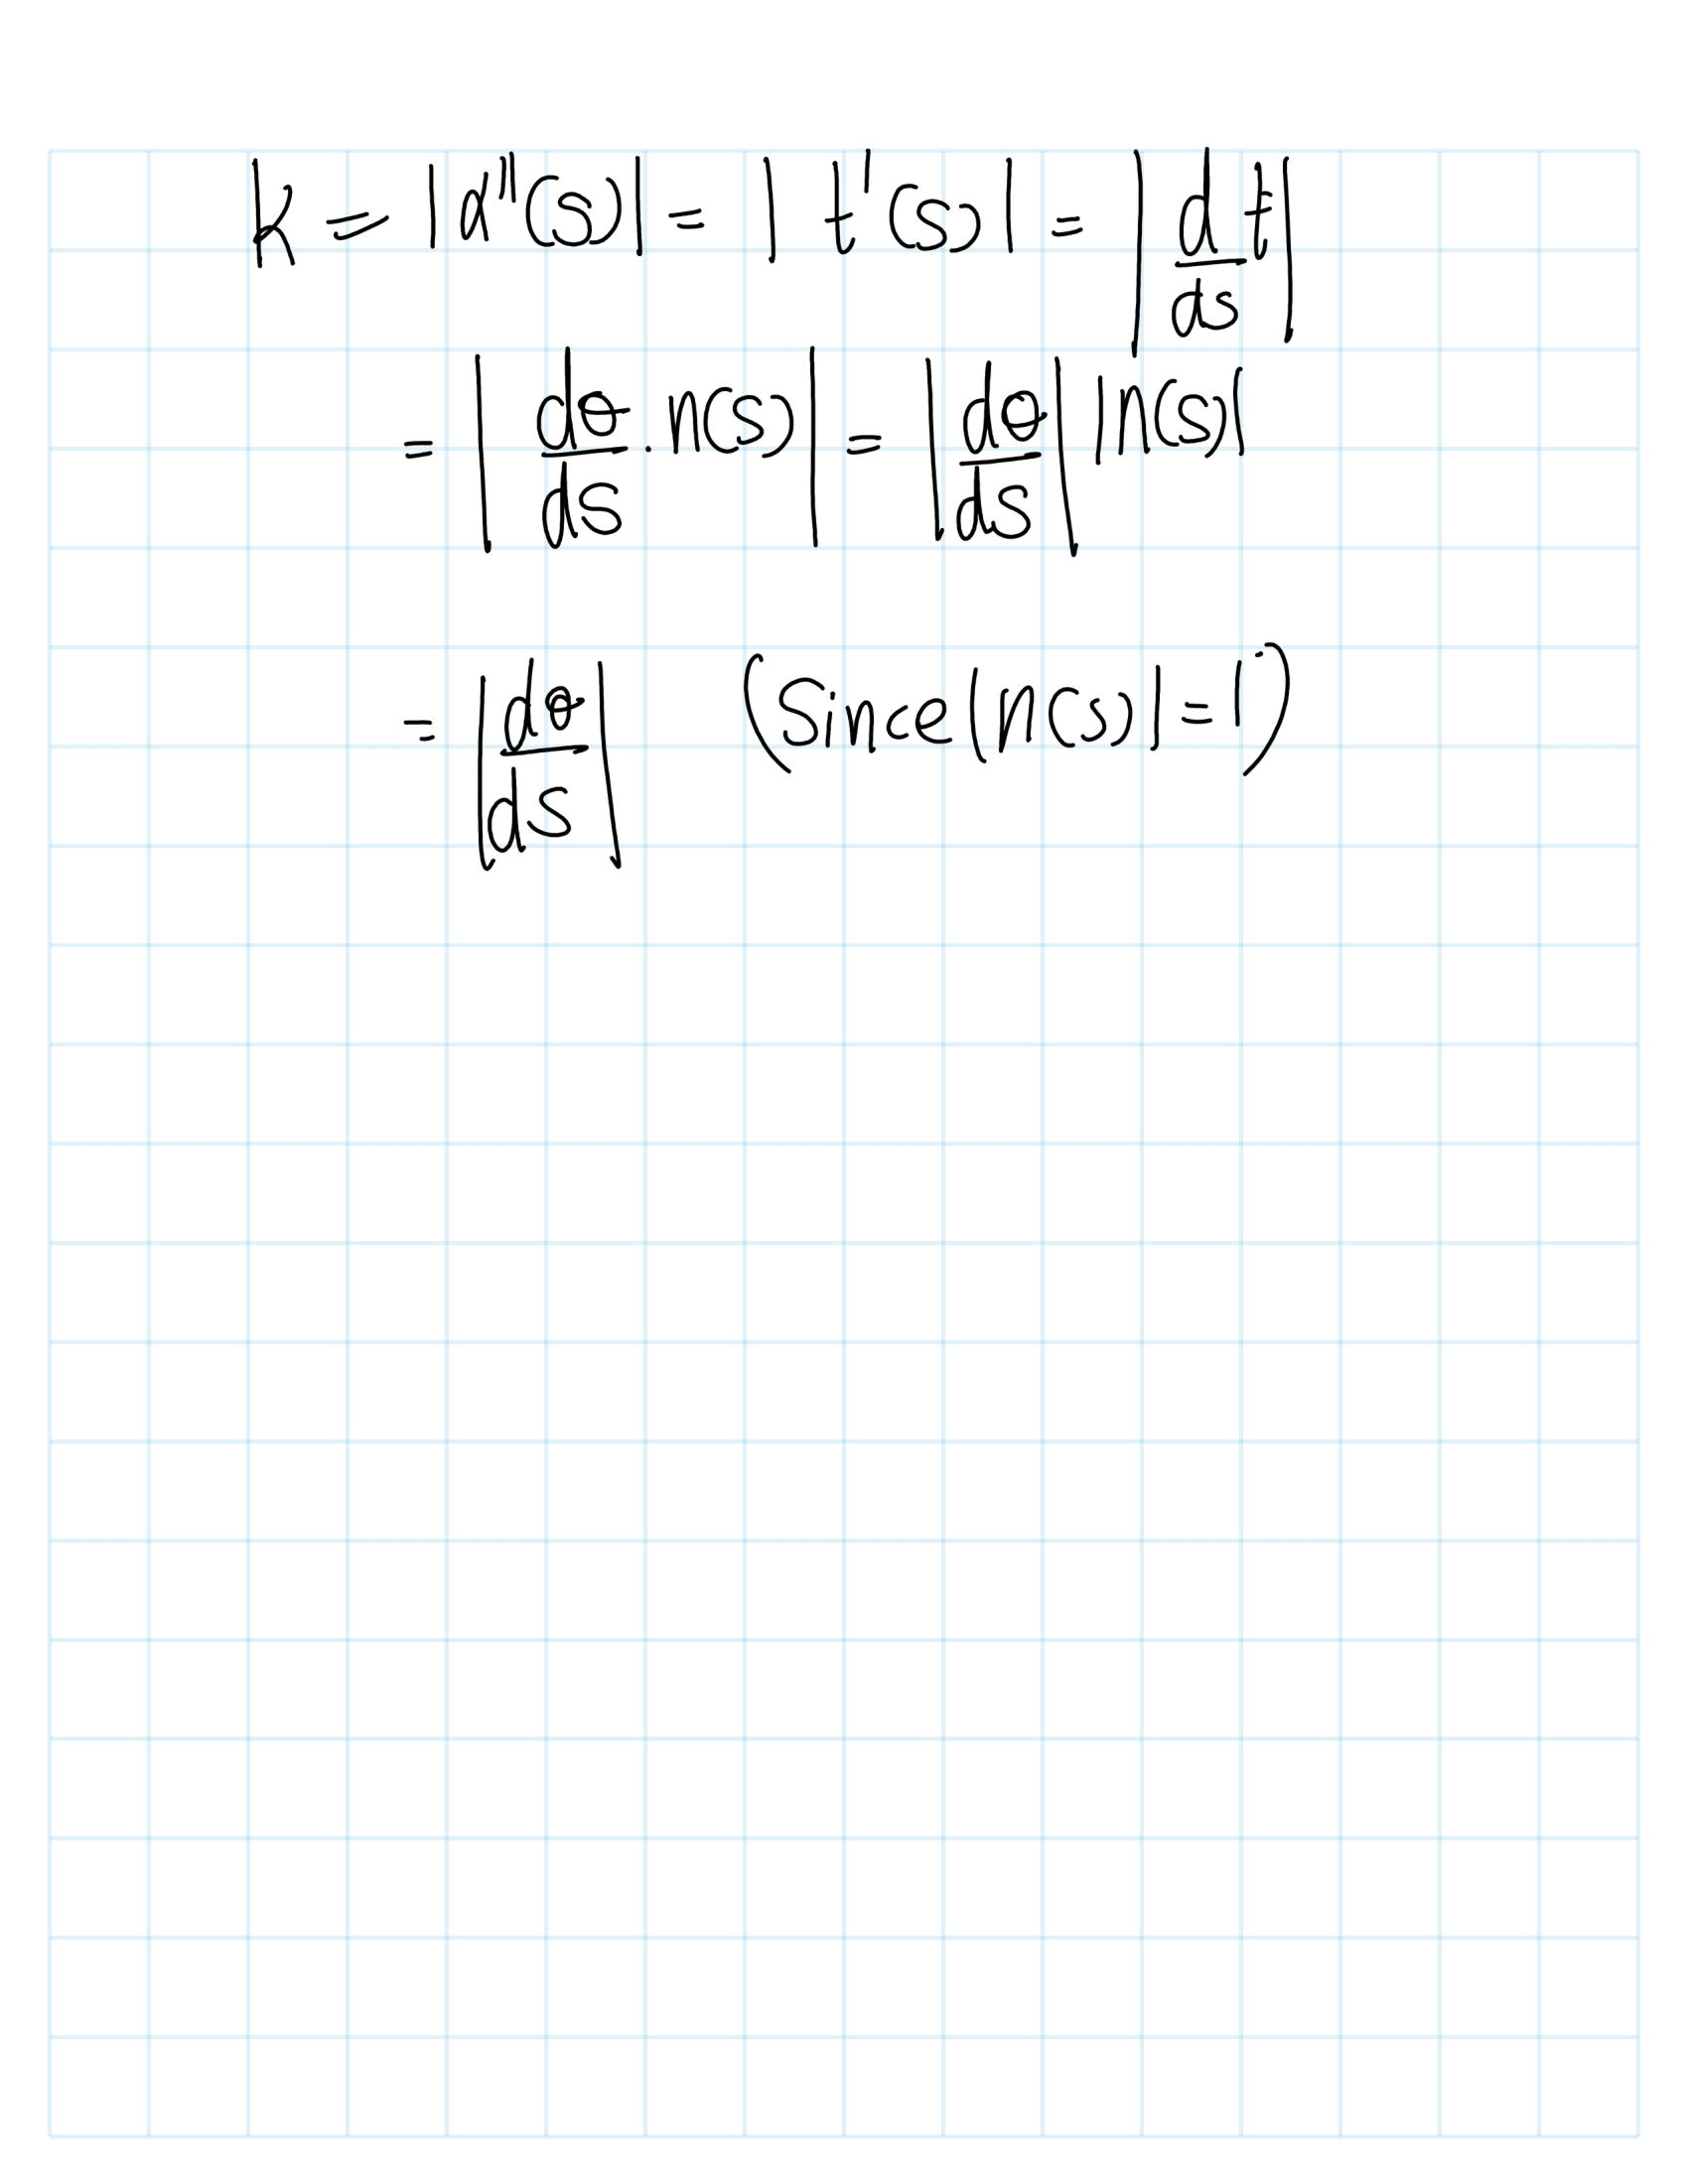 k = |α''(s)| = |t'(s)| = |d/ds t|
= |dθ/ds · n(s)| = |dθ/ds| |n(s)|
= |dθ/ds| (Since |n(s)| = 1)